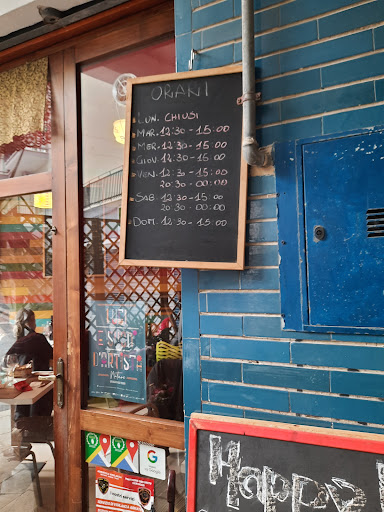 ORARI
LUN. CHIUSI
MAR. 12:30 - 15:00
MER. 12:30 - 15:00
GIOV. 12:30 - 15:00
VEN. 12:30 - 15:00
20:30 - 00:00
SAB. 12:30 - 15:00
20:30 - 00:00
DOM. 12:30 - 15:00
D'ARTISTA
Google
Happy